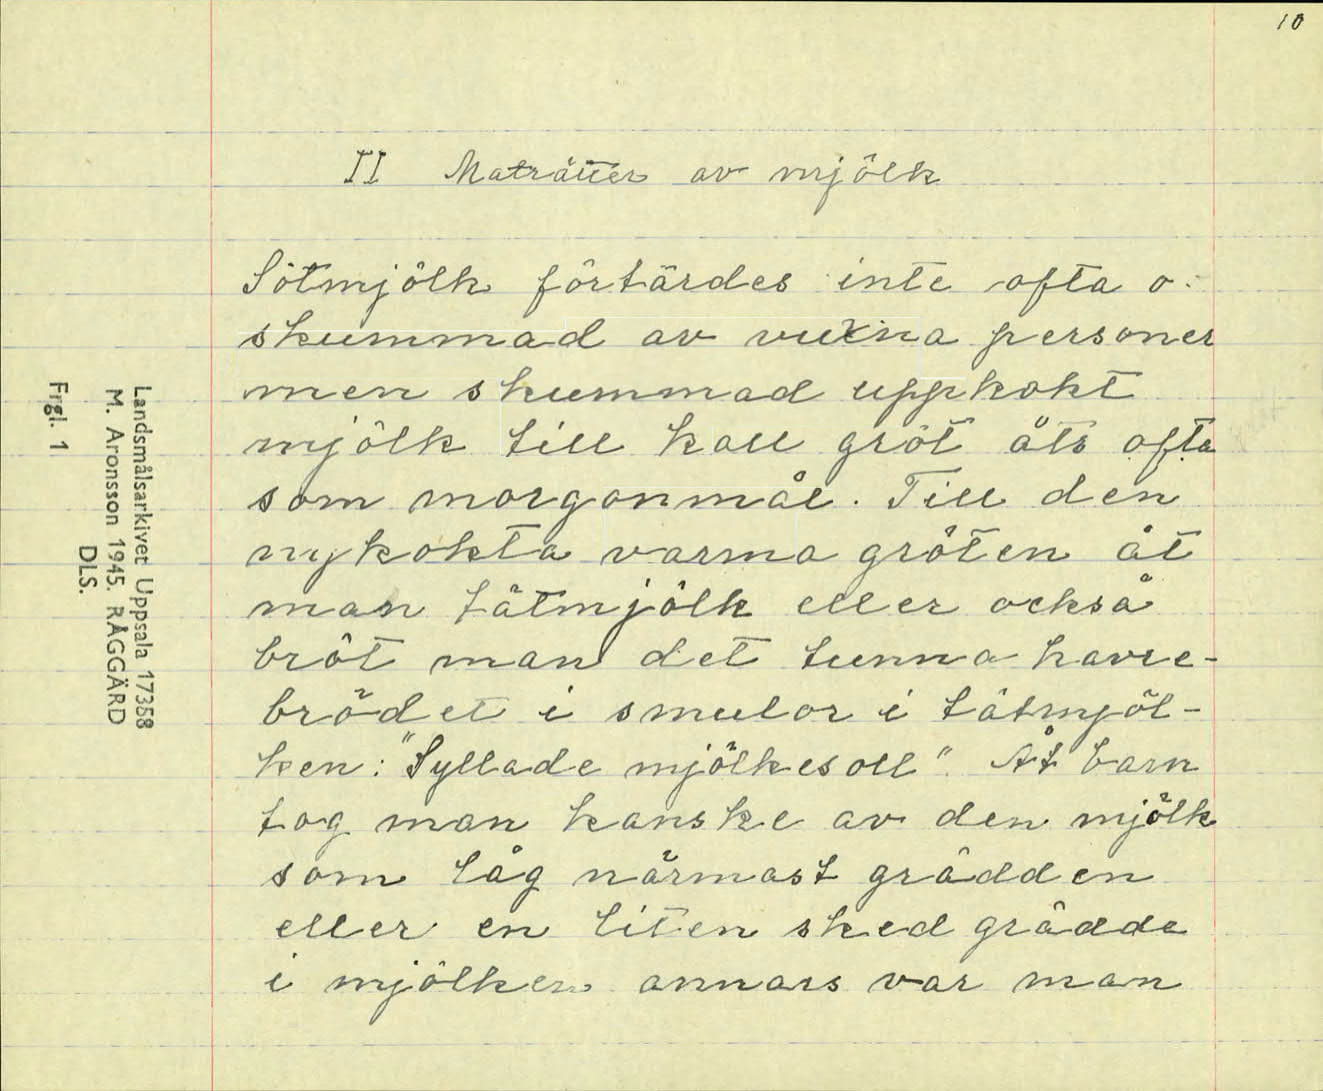 10
II Maträtter av mjölk
Sötmjölk förtärdes inte ofta o-
skummad av vuxna personer
men skummad uppkokt
mjölk till kall gröt äts ofta
som morgonmål. Till den
nykokta varma gröten åt
man tätmjölk eller också
bröt man det tunna havre-
brödet i smulor i tätmjöl-
ken: "Syllade mjölkesoll". Åt barn
tog man kanske av den mjölk
som låg närmast grädden
eller en liten sked grädde
i mjölken annars var man
Landsmålsarkivet Uppsala 17358
M. Aronsson 1945. RÅGGÄRD
DLS.
Frgl. 1